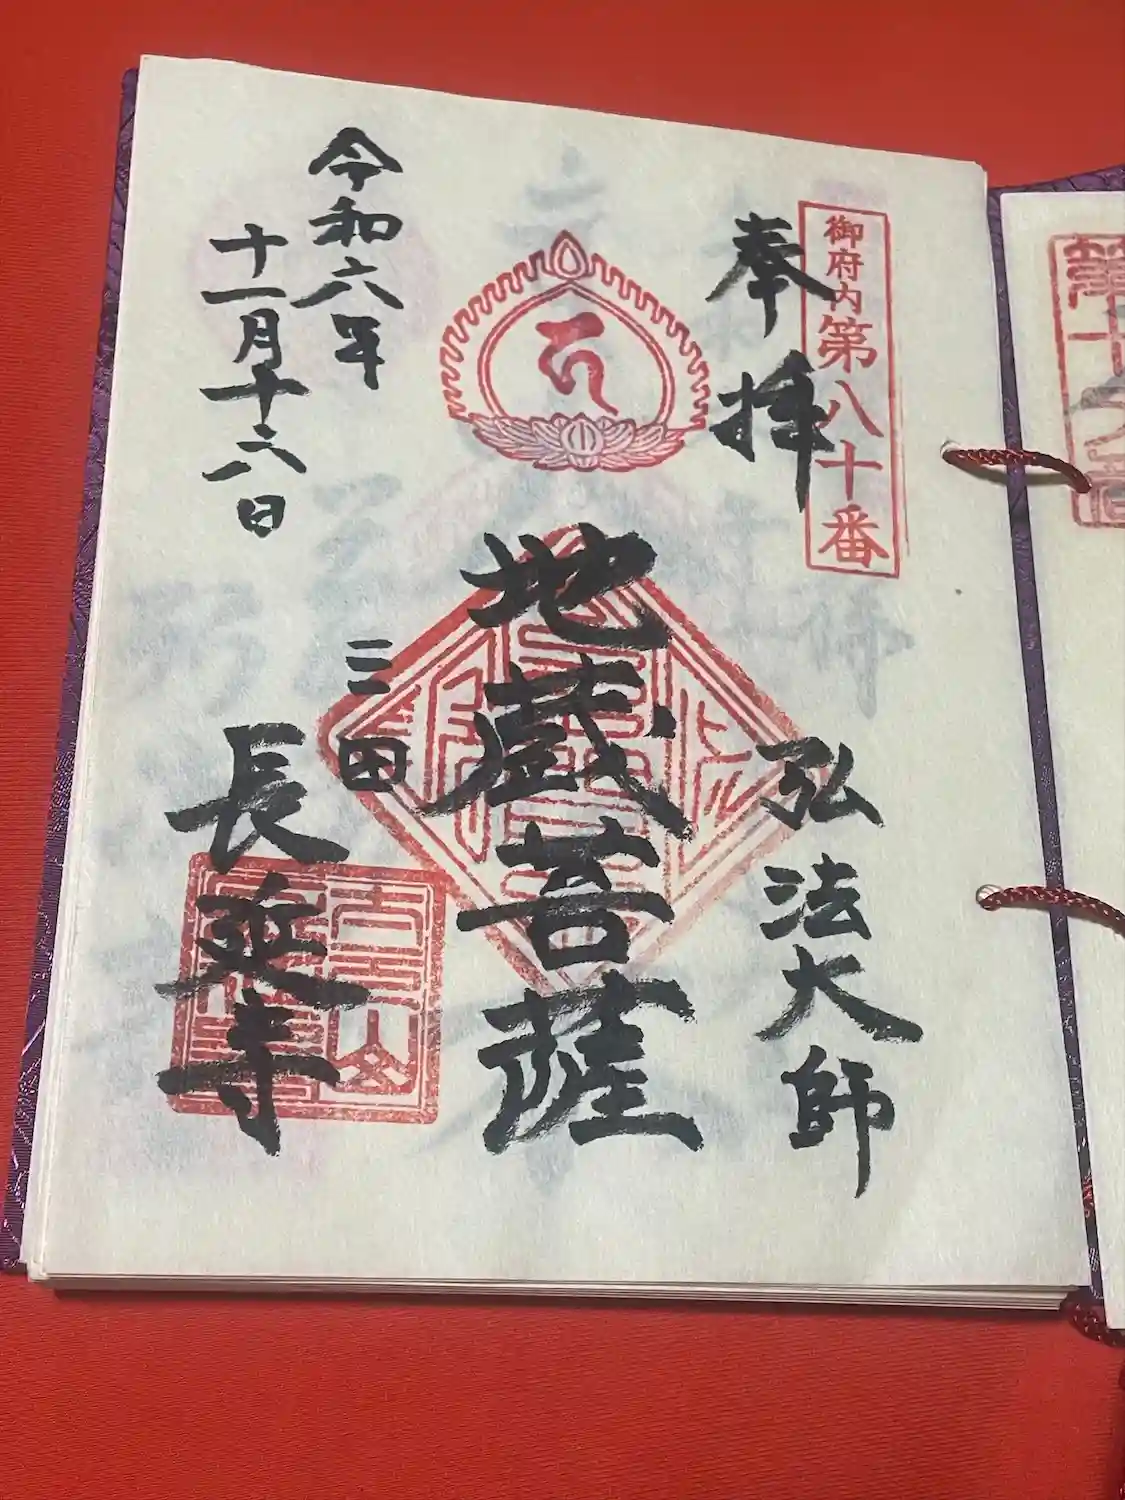 御府内第八十番
奉拝
弘法大師
地蔵菩薩
三田
長延寺
令和六年
十一月十六日